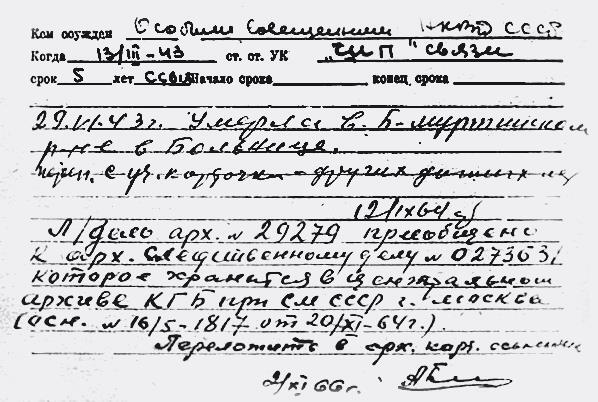 Кем осужден Особым Совещанием НКВД СССР
Когда 13/III-43 ст. ст. УК „ЦИП" связи
срок 5 лет ссыл Начало срока конец срока
29.VI.43 г. Умерла в Б-Муртинском
р-не в больнице.
уч. карточка - других данных нет
12/IX 64 г
Л/дело арх. № 29279 приобщено
к арх. следственному делу №
которое хранится в центральном
архиве КГБ при СМ СССР г. Москва
(осн. № 16/5-1817 от 20/XI-64 г.).
Переложить в арх. карт. ссыльных
2/XI 66 г.